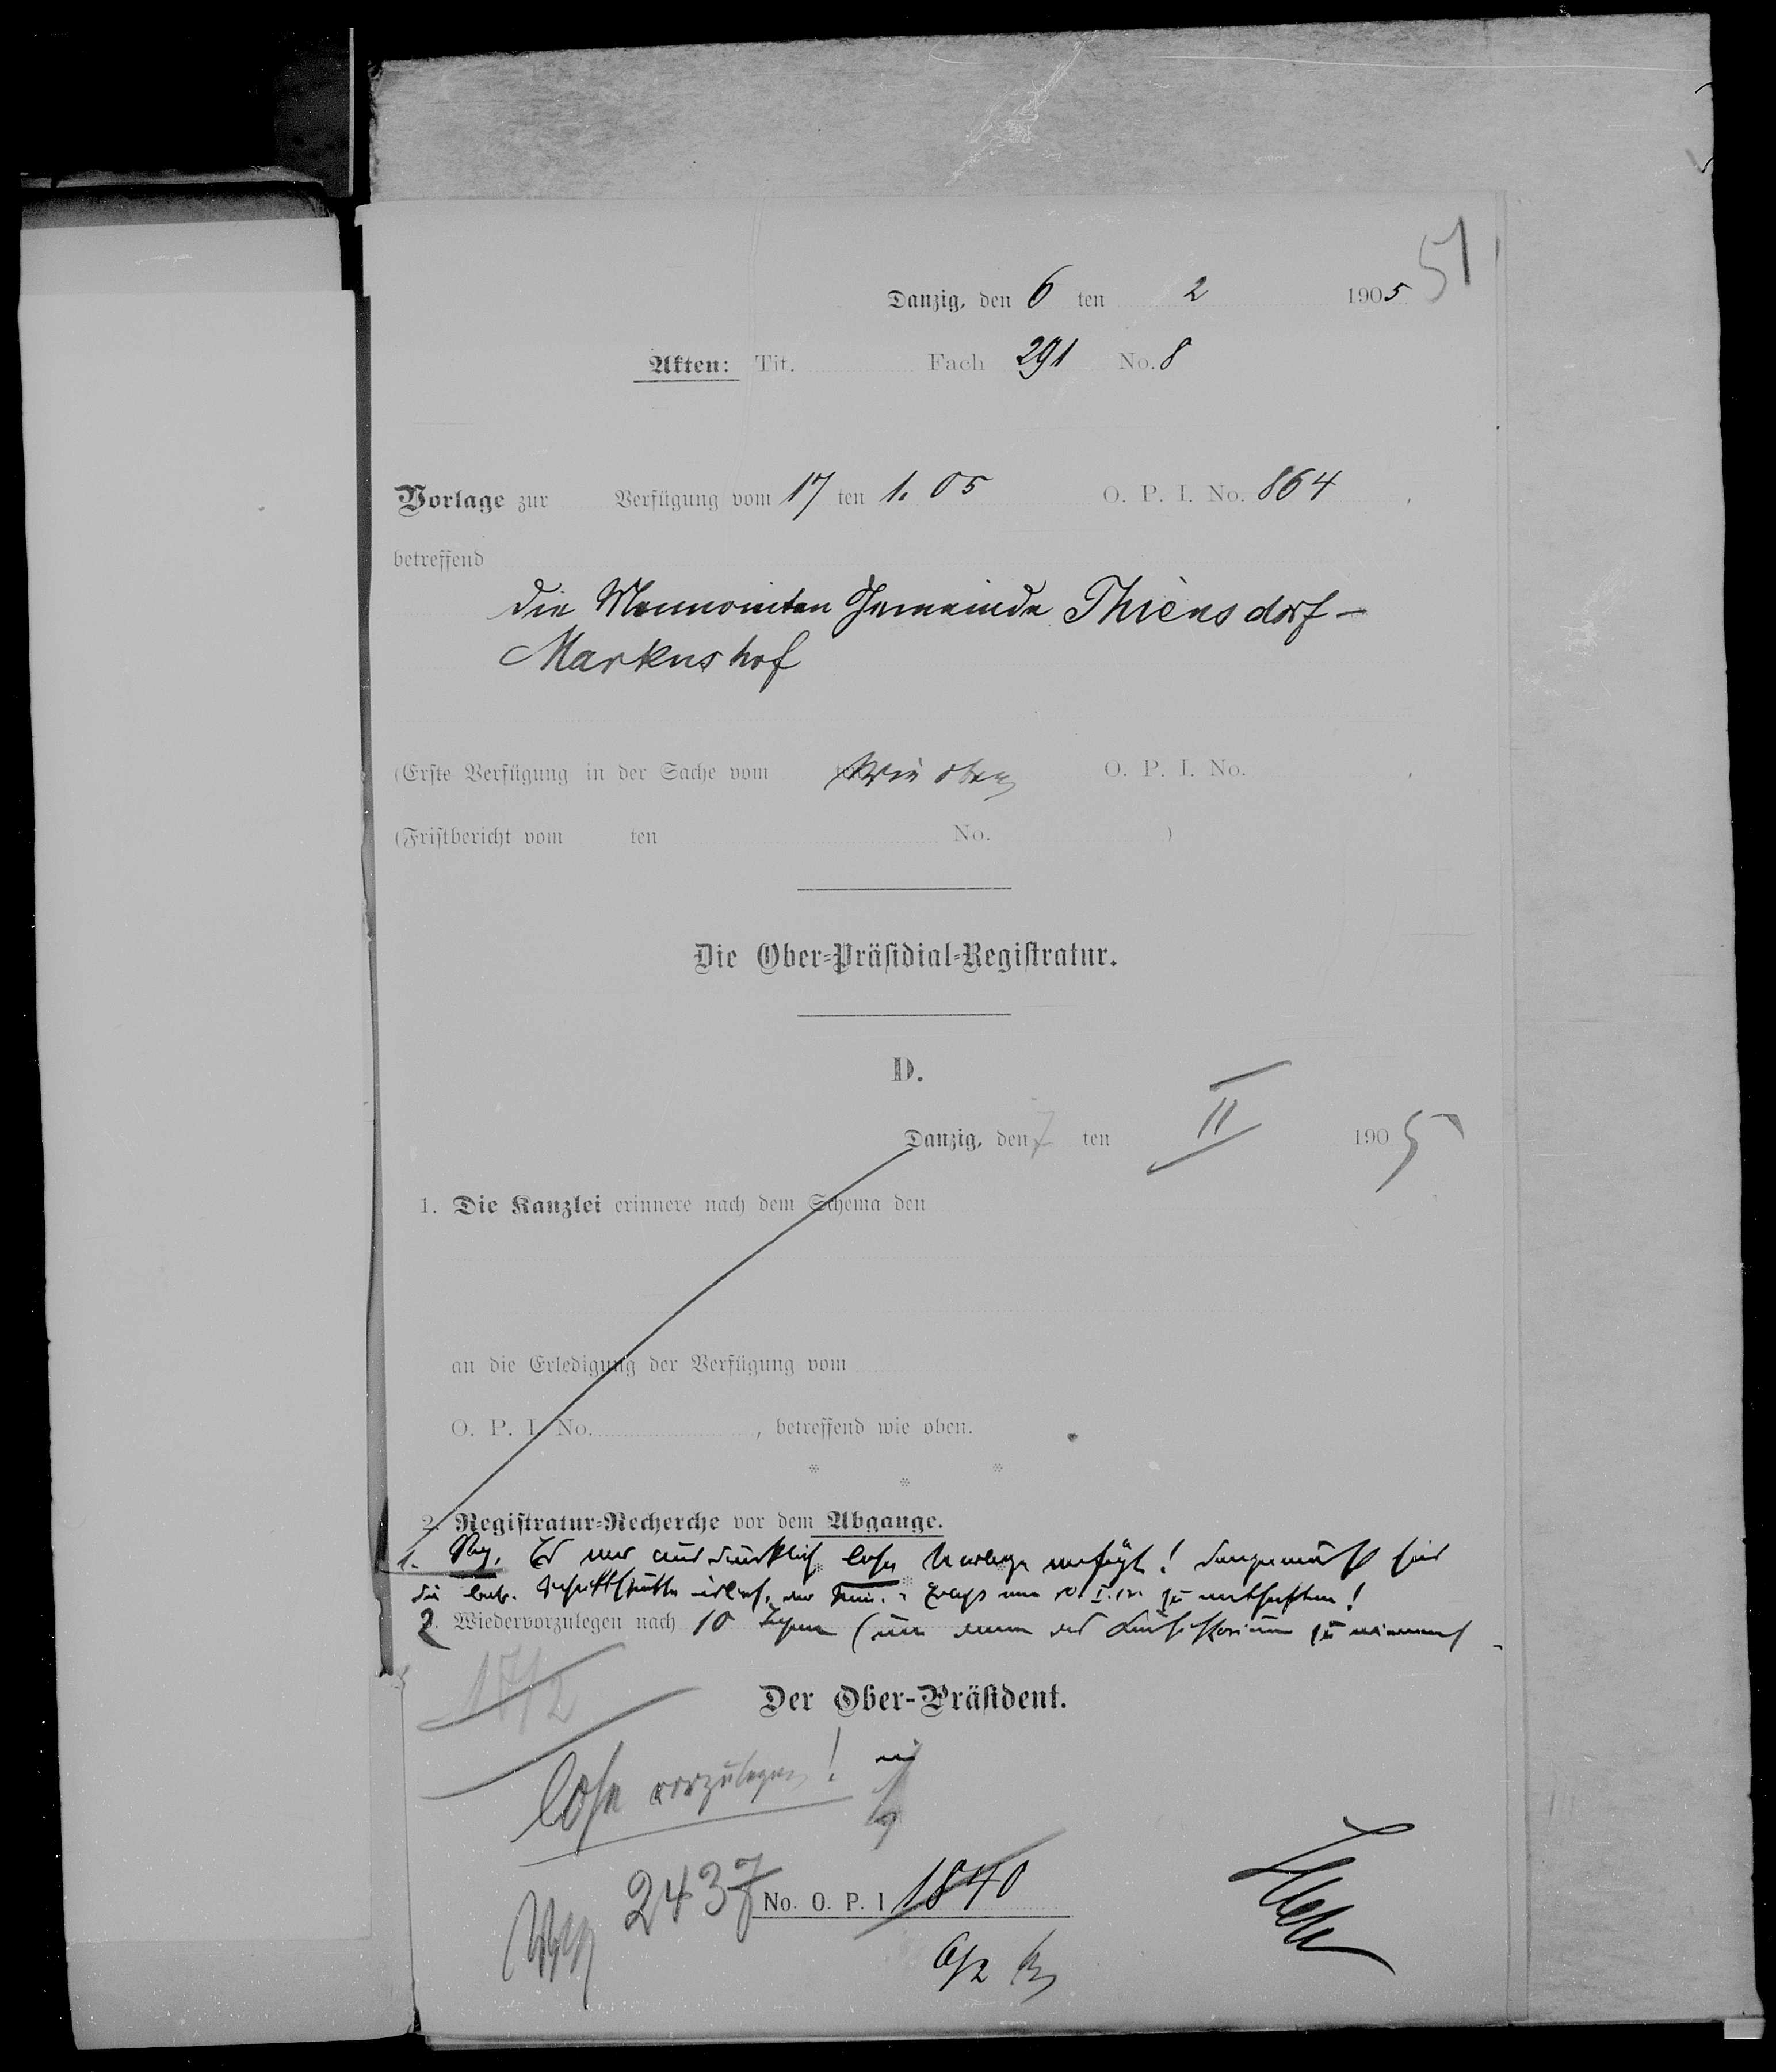 51
Danzig, den 6 ten 2 1905
Akten: Tit. Fach 291 No. 8
Vorlage zur Verfügung vom 17 ten 1. 05 O. P. I. No. 864
betreffend
die Mennoniten Gemeinde Thiensdorf-
Markushof
(Erste Verfügung in der Sache vom wie oben O. P. I. No.
(Fristbericht vom ten No. )
Die Ober-Präsidial-Registratur.
D.
Danzig, den 7 ten II 1905
1. Die Kanzlei erinnere nach dem Schema den
an die Erledigung der Verfügung vom
O. P. I. No. , betreffend wie oben.
* * *
2. Registratur-Recherche vor dem Abgange.
1. Reg. Es war ausdrücklich lose Vorlage verfügt!
die
2. Wiedervorzulegen nach 10 Tagen
17/2
Der Ober-Präsident.
lose vorzulegen!
2437 No. O. P. I 1840
6/2